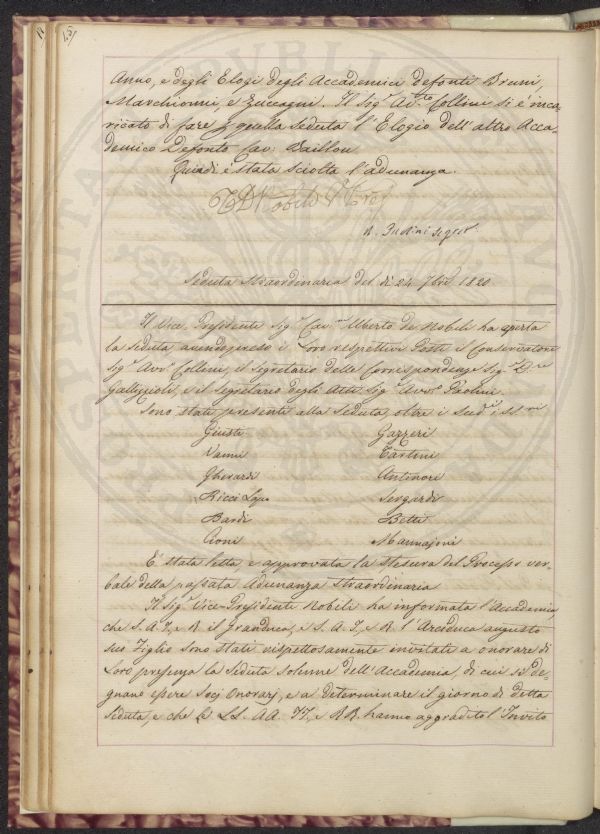 15
Anno, e degli Elogi degli Accademici defonti Bruni,
Marchionni, e Zuccagni. Il Sig.r Av.to Collini si è inca-
ricato di fare p quella Seduta l'Elogio dell'altro Acca-
demico Defonto Cav: Baillou
Quindi è stata sciolta l'adunanza.
Nobili V. Pres
Seduta Straordinaria del dì 24. 7bre 1820
Il Vice Presidente Sig.r Cav.re Alberto de Nobili ha aperta
la Seduta avendo preso i Loro respettivi Posti il Conservatore
Sig.r Avv.o Collini, il Segretario delle Corrispondenze Sig.r D.re
Gallizioli, e il Segretario degli Atti Sig.r Avv.o Paolini.
Sono stati presenti alla Seduta, oltre i Sud.i i SS.ri
Giusti Gazzeri
Vanni Tartini
Gherardi Antinori
Ricci Lap.o Sergardi
Bardi Betti
Cioni Mannajoni
E' stata letta, e approvata la Stesura del Processo ver-
bale della passata Adunanza Straordinaria
Il Sig.r Vice-Presidente Nobili ha informata l'Accademia,
che S. A. I. e R. il Granduca, e S. A. I. e R. l'Arciduca augusto
suo Figlio sono stati rispettosamente invitati a onorare di
Loro presenza la Seduta solenne dell'Accademia, di cui si de-
gnano essere Socj Onorarj, e a determinare il giorno di detta
Seduta, e che le LL. AA. II. e RR. hanno aggradito l'Invito